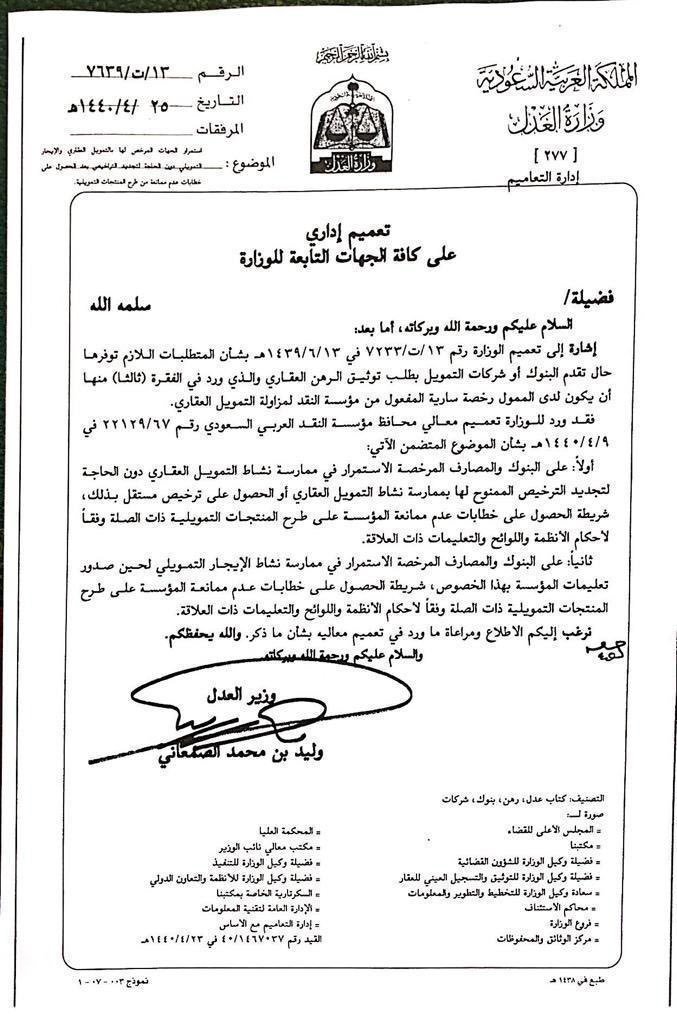 بسم الله الرحمن الرحيم
المملكة العربية السعودية
وزارة العدل
[ ٢٧٧ ]
إدارة التعاميم
وزارة العدل
الرقم ١٣/ت/٧٦٣٩
التاريخ ٢٥ /٤/١٤٤٠هـ
المرفقات
الموضوع : استمرار الجهات المرخص لها بالتمويل العقاري والإيجار
التمويلي دون الحاجة لتجديد التراخيص بعد الحصول على
خطابات عدم ممانعة من طرح المنتجات التمويلية.
تعميم إداري
على كافة الجهات التابعة للوزارة
فضيلة/ سلمه الله
السلام عليكم ورحمة الله وبركاته، أما بعد:
إشارة إلى تعميم الوزارة رقم ١٣/ت/٧٢٣٣ في ١٤٣٩/٦/١٣هـ بشأن المتطلبات اللازم توفرها
حال تقدم البنوك أو شركات التمويل بطلب توثيق الرهن العقاري والذي ورد في الفقرة (ثالثا) منها
أن يكون لدى الممول رخصة سارية المفعول من مؤسسة النقد لمزاولة التمويل العقاري.
فقد ورد للوزارة تعميم معالي محافظ مؤسسة النقد العربي السعودي رقم ٢٢١٢٩/٦٧ في
١٤٤٠/٤/٩هـ بشأن الموضوع المتضمن الآتي:
أولاً: على البنوك والمصارف المرخصة الاستمرار في ممارسة نشاط التمويل العقاري دون الحاجة
لتجديد الترخيص الممنوح لها بممارسة نشاط التمويل العقاري أو الحصول على ترخيص مستقل بذلك،
شريطة الحصول على خطابات عدم ممانعة المؤسسة على طرح المنتجات التمويلية ذات الصلة وفقاً
لأحكام الأنظمة واللوائح والتعليمات ذات العلاقة.
ثانياً: على البنوك والمصارف المرخصة الاستمرار في ممارسة نشاط الإيجار التمويلي لحين صدور
تعليمات المؤسسة بهذا الخصوص، شريطة الحصول على خطابات عدم ممانعة المؤسسة على طرح
المنتجات التمويلية ذات الصلة وفقاً لأحكام الأنظمة واللوائح والتعليمات ذات العلاقة.
نرغب إليكم الاطلاع ومراعاة ما ورد في تعميم معاليه بشأن ما ذكر. والله يحفظكم.
والسلام عليكم ورحمة الله وبركاته.
وزير العدل
وليد بن محمد الصمعاني
التصنيف: كتاب عدل، رهن، بنوك، شركات
صورة لـــ:
= المجلس الأعلى للقضاء
= مكتبنا
= فضيلة وكيل الوزارة للشؤون القضائية
= فضيلة وكيل الوزارة للتوثيق والتسجيل العيني للعقار
= سعادة وكيل الوزارة للتخطيط والتطوير والمعلومات
= محاكم الاستئناف
= فروع الوزارة
= مركز الوثائق والمحفوظات
= المحكمة العليا
= مكتب معالي نائب الوزير
= فضيلة وكيل الوزارة للتنفيذ
= فضيلة وكيل الوزارة للأنظمة والتعاون الدولي
= السكرتارية الخاصة بمكتبنا
= الإدارة العامة لتقنية المعلومات
= إدارة التعاميم مع الأساس
القيد رقم ٤٠/١٤٦٧٠٣٧ في ١٤٤٠/٤/٢٣هـ
طبع في ١٤٣٨ هـ
نموذج ٠٠٣ - ٠٧ - ١